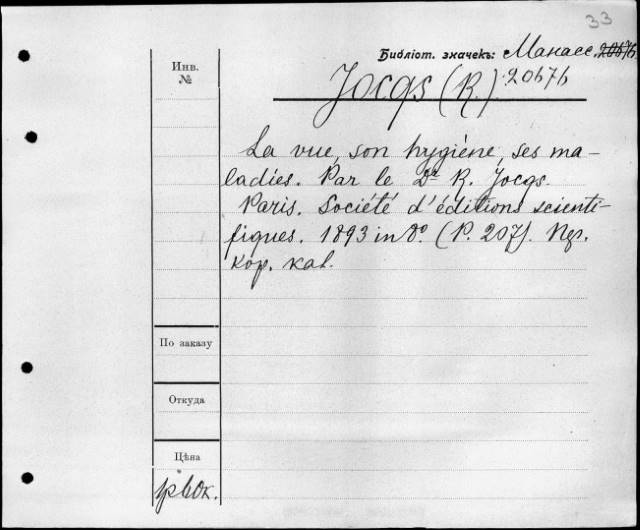 33
Библіот. значекъ: Манасс. 20676
Инв.
№
Jocqs (R.) 20676
La vue, son hygiène, ses ma-
ladies. Par le Dr R. Jocqs.
Paris. Société d'éditions scienti-
fiques. 1893 in 8º. (P. 207).
кор. кав.
По заказу
Откуда
Цѣна
1р60к.